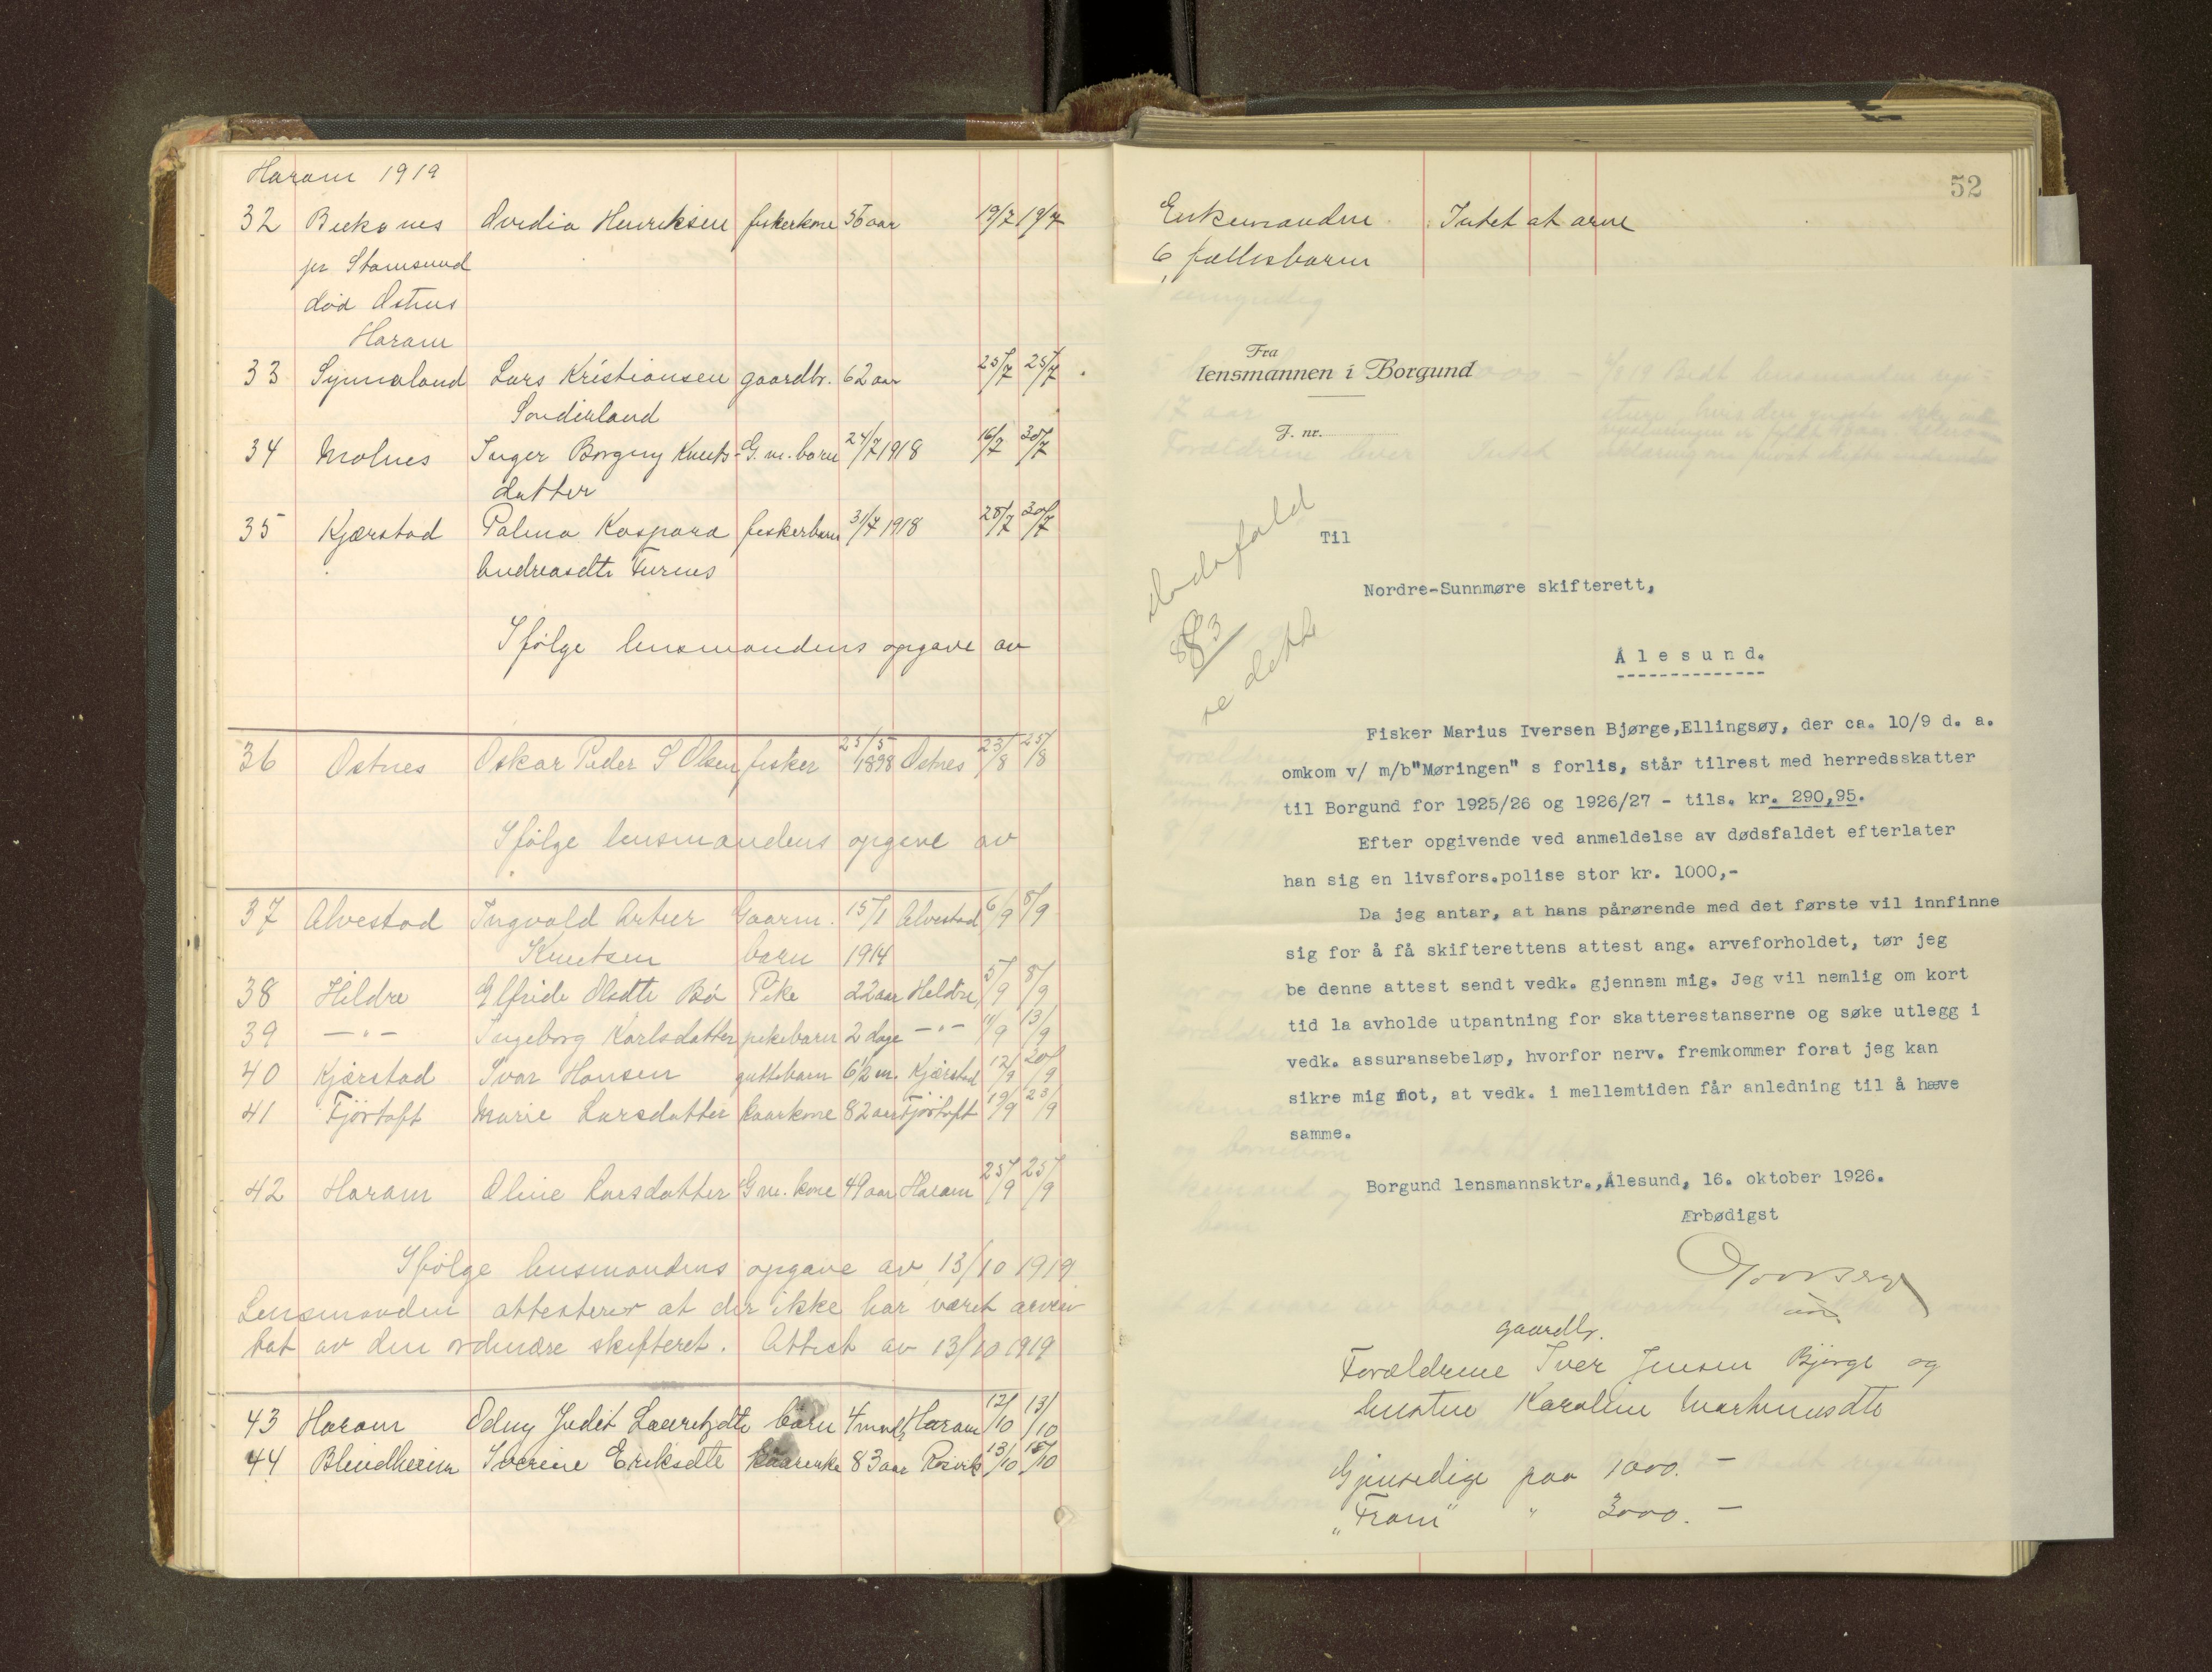 Haram 1919
32 Ovidia Henriksen fiskerkone 56 aar 19/7 19/7
pr Stamsund
død Østnes
Haram
33 Synnaland Lars Kristiansen gaardbr. 62 aar 25/7 25/7
Sønderland
34 Molnes Inger Borgny Knuts- G.m. barn 24/7 1918 16/7 30/7
datter
35 Kjærstad Palma Kaspara fiskerbarn 31/7 1918 28/7 30/7
Andreasdtr Furnes
Ifølge lensmandens opgave av
36 Østnes Oskar Peder S Olsen fisker 25/5 1898 Østnes 23/8 25/8
Ifølge lensmandens opgave av
37 Alvestad Ingvald Artur Gaarm. 15/1 Alvestad 6/9 8/9
Knutsen barn 1914
38 Hildre Elfride Olsdtr Bø Pike 22 aar Hildre 5/9 8/9
39 —"— Ingeborg Karlsdatter pikebarn 2 dage —"— 11/9 13/9
40 Kjærstad Ivar Hansen guttebarn 6½ m. Kjærstad 12/9 20/9
41 Fjørtoft Marie Larsdatter kaarkone 82 aar Fjørtoft 19/9 23/9
42 Haram Oline Larsdatter G.m. kone 49 aar Haram 25/9 25/9
Ifølge lensmandens opgave av 13/10 1919
Lensmanden attesterer at der ikke har været
tat av den ordinære skifteret. Attest av 13/10 1919
43 Haram Odny Judit Lauritzdtr barn 4 mndr Haram 12/10 13/10
44 Blindheim Iverine Eriksdtr kaarenke 83 aar Røsvik 13/10 15/10
52
Enkemanden Intet at arve
6 fællesbarn
Fra
lensmannen i Borgund
J. nr.
dødsfald
883
Til
Nordre-Sunnmøre skifterett,
Ålesund.
Fisker Marius Iversen Bjørge,Ellingsøy, der ca. 10/9 d. a.
omkom v/ m/b"Møringen" s forlis, står tilrest med herredsskatter
til Borgund for 1925/26 og 1926/27 - tils. kr. 290,95.
Efter opgivende ved anmeldelse av dødsfaldet efterlater
han sig en livsfors.polise stor kr. 1000,-
Da jeg antar, at hans pårørende med det første vil innfinne
sig for å få skifterettens attest ang. arveforholdet, tør jeg
be denne attest sendt vedk. gjennem mig. Jeg vil nemlig om kort
tid la avholde utpantning for skatterestanserne og søke utlegg i
vedk. assuransebeløp, hvorfor nerv. fremkommer forat jeg kan
sikre mig mot, at vedk. i mellemtiden får anledning til å hæve
samme.
Borgund lensmannsktr.,Ålesund, 16. oktober 1926.
Ærbødigst
gaardbr.
Forældrene Iver Jensen Bjørge og
hustru Karoline Martinusdtr
Gjensidige paa 1000.-
"Fram" " 3000.-